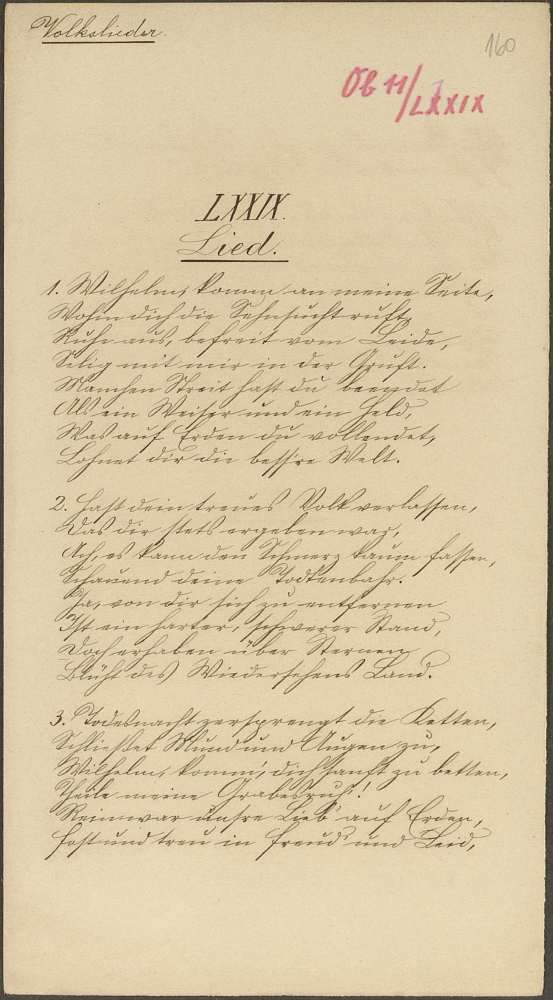 Volkslieder.
160
Ob 11/LXXIX
LXXIX.
Lied.
1. Wilhelm, komm an meine Seite,
Wohin dich die Sehnsucht ruft,
Ruhe aus, befreit vom Leide,
Selig mit mir in der Gruft.
Manchen Streit hast du beendet
Als ein Weiser und ein Held,
Was auf Erden du vollendet,
Lohnet dir die bess're Welt.
2. Hast dein treues Volk verlassen,
Das dir stets ergeben war,
Ach, es kann den Schmerz kaum fassen,
Schauend deine Todtenbahr.
Ja, von dir sich zu entfernen
Ist ein harter, schwerer Stand,
Doch erhaben über Sternen
Blüht des Wiedersehens Land.
3. Todesnacht zersprengt die Ketten,
Schließet Mund und Augen zu,
Wilhelm, komm', dich sanft zu betten,
Theile meine Grabesruh'!
Rein war unsre Lieb' auf Erden,
Fest und treu in Freud' und Leid,